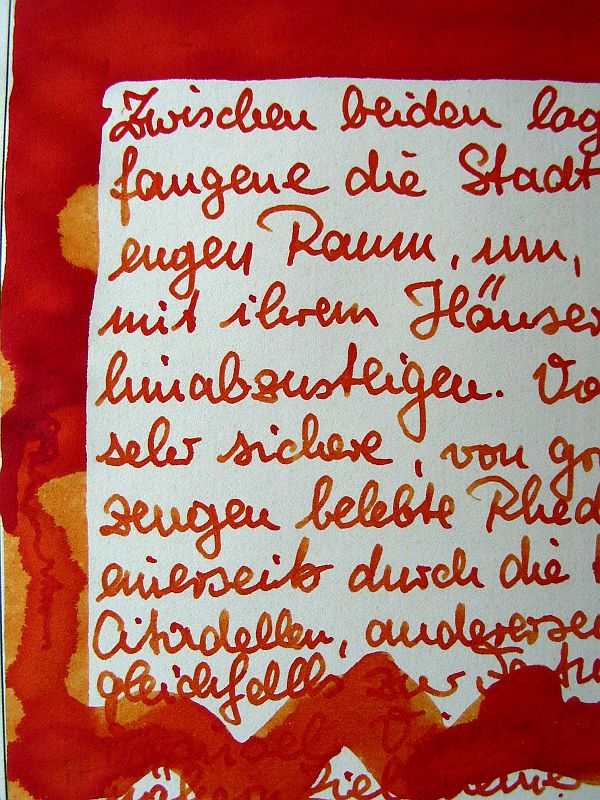 Zwischen beiden lag
fangene die Stadt
engen Raum, um,
mit ihrem Häuser
hinabzusteigen. Vo
sehr sichere, von gro
zeugen belebte Rhed
einerseits durch die
Citadellen, andererse
gleichfalls zur